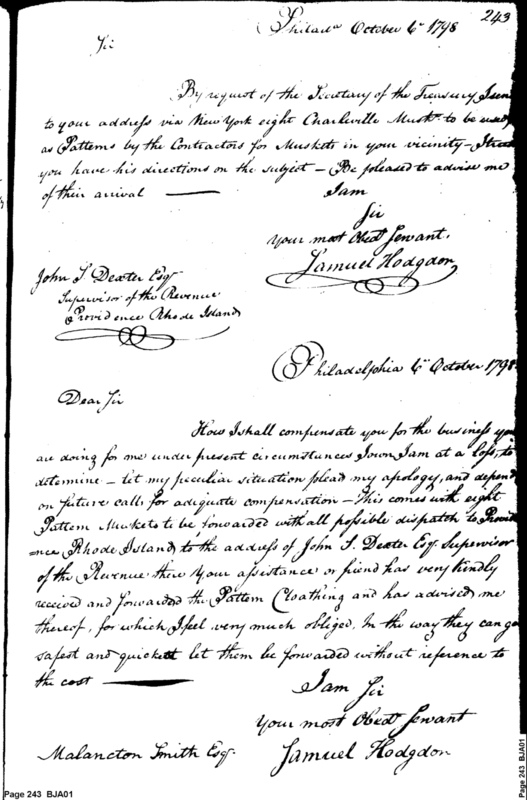 243
Philada October 6th 1798
Sir
By request of the Secretary of the Treasury I send
to your address via New York eight Charleville Musks. to be used
as Patterns by the Contractors for Muskets in your vicinity - I trust
you have his directions on the subject - Be pleased to advise me
of their arrival
I am
Sir
Your most Obedt Servant.
Samuel Hodgdon
John S Dexter Esqr
Supervisor of the Revenue
Providence Rhode Island
Philadelphia 6th October 1798
Dear Sir
How I shall compensate you for the business you
are doing for me under present circumstances I own I am at a loss, to
determine - let my peculiar situation plead my apology, and depend
on future calls for adequate compensation - This comes with eight
Pattern Muskets to be forwarded with all possible dispatch to Provid
=ence Rhode Island, to the address of John S. Dexter Esqr. Supervisor
of the Revenue there Your assistance or friend has very kindly
received and forwarded the Pattern Cloathing and has advised me
thereof, for which I feel very much obliged. In the way they can go
safest and quickest let them be forwarded without reference to
the cost
I am Sir
Your most Obedt Servant
Samuel Hodgdon
Malancton Smith Esqr.
Page 243 BJA01
Page 243 BJA01